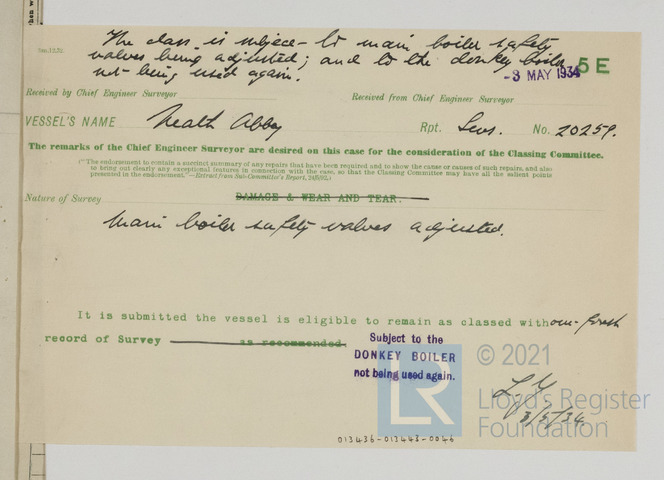 The class is subject to main boiler safety
valves being adjusted; and to the donkey boiler
not being used again.
-3 MAY 1934
5E
Received by Chief Engineer Surveyor
Received from Chief Engineer Surveyor
VESSEL'S NAME Neath Abbey Rpt. Sws. No. 20259.
The remarks of the Chief Engineer Surveyor are desired on this case for the consideration of the Classing Committee.
("The endorsement to contain a succinct summary of any repairs that have been required and to show the cause or causes of such repairs, and also
to bring out clearly any exceptional features in connection with the case, so that the Classing Committee may have all the salient points
presented in the endorsement."—Extract from Sub-Committee's Report,
Nature of Survey DAMAGE & WEAR AND TEAR.
Main boiler safety valves adjusted.
It is submitted the vessel is eligible to remain as classed without fresh
record of Survey as recommended
Subject to the
DONKEY BOILER
not being used again.
3/5/34
LR
© 2021
Lloyd's Register
Foundation
013436-013443-0046